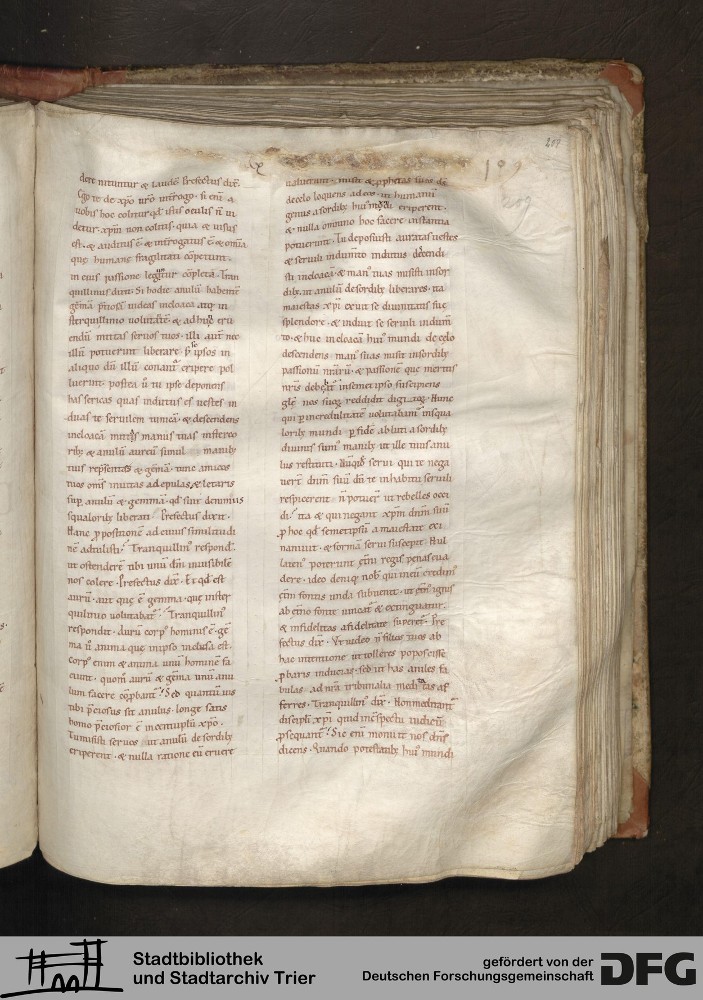 199
209
dere nituntur & laudē. Prefectus dix̄.
nobis hoc colitur qđ istis oculis ñ ui
detur. xp̄m uon colitis. quia & uisus
est. & auditus ē & int̄rogatus ē & om̄ia
que humane fragilitati cōpetunt.
in eius passione cōpleta. Tran
quillinus dixit. Si hodie anulū habentē
gēmā p̄tiosā uideas incloaca atq; in
sterquilinio uolutatē. &
endū mittas seruos tuos. illi aut̄ nec
illū potuerint liberare. ipsos in
aliquo dū illū conant̄ eripere pol
luerint. postea ū tu ipse deponens
has sericas quas indutus es uestes in
duas te seruilem tunicā. & descendens
incloacā mittas manus tuas instereo
rib; & anulū aureū simul manib;
tuis rep̄sentas & gēmā. tunc amicos
tuos om̄s inuitas ad epulas & letaris
sup̄ anulū & gemmā. qđ sint
squalorib; liberati. Prefectus dixit.
Hanc p̄positionē ad cuius similitudi
nē adtulisti? Tranquillin᷒ respond̄.
ut ostenderē tibi unū dm̄ inuisibilē
nos colere. Prefectus dix̄. Et qđ est
aurū. aut que ē gemma. que inster
quilinio uolutabat̄? Tranquillin᷒
respondit. Aurū corp᷒ hominis ē. gē
ma ū anima que inipso inclusa est.
Corp᷒ enim & anima unū hominē fa
ciunt. quom̄ aurū & gēma unū anu
lum facere cōp̄bant̄. Sed quantū uis
tibi p̄ciosus sit anulus. longe satis
homo p̄ciosior ē xp̄o.
Tu misisti seruos. ut anulū de sordib;
eriperent. & nulla ratione eū eruere
ualuerunt. misit & p̄phetas suos d̄s
decelo loquens ad eos. ut humanū
genus a sordib; hui᷒ mūdi eriperent.
& nulla omnino hoc facere instantia
potuerunt. Tu deposuisti auratas uestes
& seruili indum̄to indutus descendi
sti incloacā & man᷒ tuas misisti insor
dib;. ut anulū desordib; liberares. ita
maiestas xp̄i exuit se diuinitatis sue
splendore. & induit se seruili indum̄
to. & huc in cloacā hui᷒ mundi de celo
descendens man᷒ suas misit insordib;
passionū nr̄arū. & passionē que mortib;
nr̄is debebat̄ insemetipso suscipiens
glē. nos sueq; reddidit digi
qui p̄ incredulitatē uolutabam᷒ insqua
lorib; mundi. p̄ fidē abluti a sordib;
diuinis sum᷒ manib; ut ille tuus anu
lus restituti. Nūqđ serui qui te nega
uerī dn̄m suū dū te inhabitu seruili
respicerent. ñ poterūt ut rebelles occi
di? ita & qui negant xp̄m dn̄m suū
p̄ hoc qđ semetipsū a maiestate exi
naniuit. & formā serui suscepit. Nul
laten᷒ poterunt et̄ni regis penas eua
dere. ideo deniq; nob̄ qui in eū credim᷒
et̄ni fontis unda subuenit. ut et̄n᷒ ignis
ab et̄no fonte uincat̄ & extinguatur.
& infidelitas afidelitate superet̄. Pre
fectus dix̄. Vt uideo ñ filiis tuis ab
hac intentione ut tolleres poposcisse
p̄baris inducias. sed ut has aniles fa
bulas. ad nr̄a tribunalia meditatas af
ferres. Tranquillin᷒ dix̄. Non meditant̄
discipli xp̄i quid in cōspectu iudicū
p̄sequant̄? Sic eni monuit nos dn̄s
dicens. Quando potestatib; hui᷒ mundi
Stadtbibliothek
und Stadtarchiv Trier
gefördert von der
Deutschen Forschungsgemeinschaft
DFG